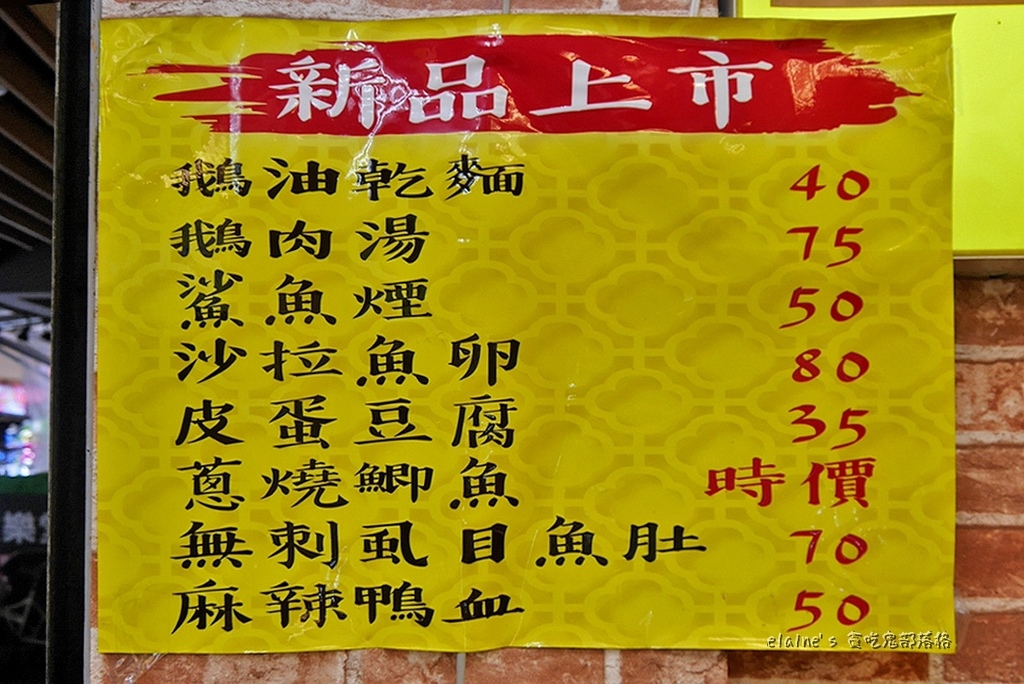 新品上市
鵝油乾麵 40
鵝肉湯 75
鯊魚煙 50
沙拉魚卵 80
皮蛋豆腐 35
蔥燒鯽魚 時價
無刺虱目魚肚 70
麻辣鴨血 50
樂
elaine's 貪吃鬼部落格